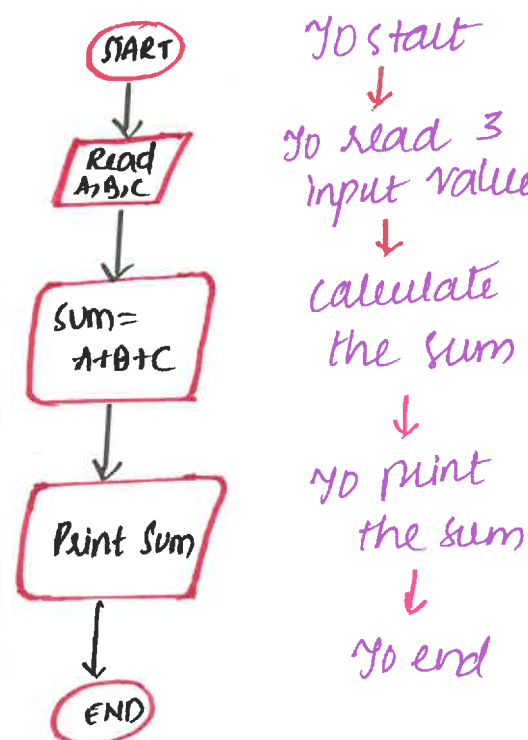 START
Read
A,B,C
sum=
A+B+C
Print Sum
END
To start
To read 3
input value
calculate
the sum
To print
the sum
To end